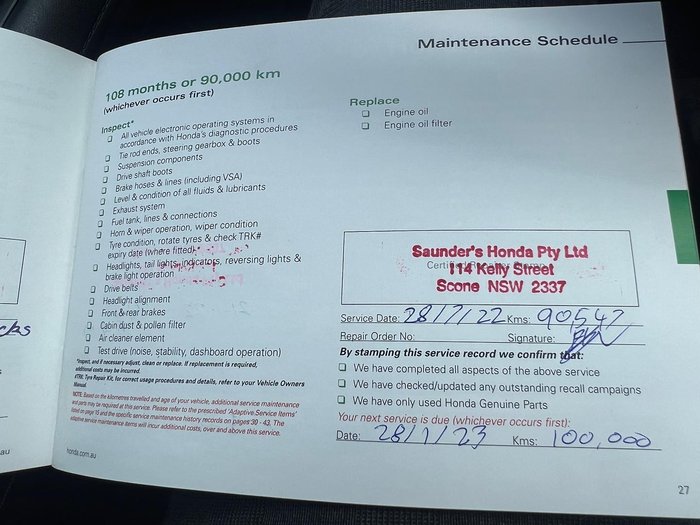 Maintenance Schedule
108 months or 90,000 km
(whichever occurs first)
Inspect*
All vehicle electronic operating systems in
accordance with Honda's diagnostic procedures
Tie rod ends, steering gearbox & boots
Suspension components
Drive shaft boots
Brake hoses & lines (including VSA)
Level & condition of all fluids & lubricants
Exhaust system
Fuel tank, lines & connections
Horn & wiper operation, wiper condition
Tyre condition, rotate tyres & check TRK#
expiry date (where fitted)
Headlights, tail lights, indicators, reversing lights &
brake light operation
Drive belts
Headlight alignment
Front & rear brakes
Cabin dust & pollen filter
Air cleaner element
Test drive (noise, stability, dashboard operation)
*Inspect, and if necessary adjust, clean or replace. If replacement is required,
additional costs may be incurred.
#TRK: Tyre Repair Kit, for correct usage procedures and details, refer to your Vehicle Owners
Manual.
NOTE: Based on the kilometres travelled and age of your vehicle, additional service maintenance
and parts may be required at this service. Please refer to the prescribed 'Adaptive Service Items'
listed on page 15 and the specific service maintenance history records on pages 39 - 43. The
adaptive service maintenance items will incur additional costs, over and above this service.
honda.com.au
Replace
Engine oil
Engine oil filter
Saunder's Honda Pty Ltd
114 Kelly Street
Scone NSW 2337
Service Date: 28/7/22 Kms: 90,547
Repair Order No: Signature:
By stamping this service record we confirm that:
We have completed all aspects of the above service
We have checked/updated any outstanding recall campaigns
We have only used Honda Genuine Parts
Your next service is due (whichever occurs first):
Date: 28/1/23 Kms: 100,000
27